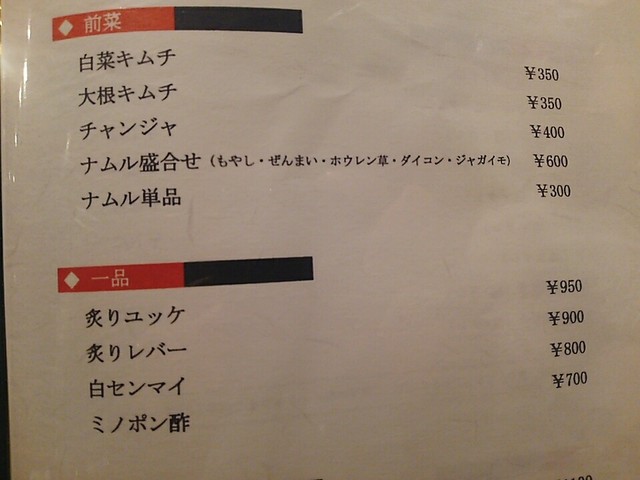 ◆ 前菜
白菜キムチ ¥350
大根キムチ ¥350
チャンジャ ¥400
ナムル盛合せ (もやし・ぜんまい・ホウレン草・ダイコン・ジャガイモ) ¥600
ナムル単品 ¥300
◆ 一品
炙りユッケ ¥950
炙りレバー ¥900
白センマイ ¥800
ミノポン酢 ¥700